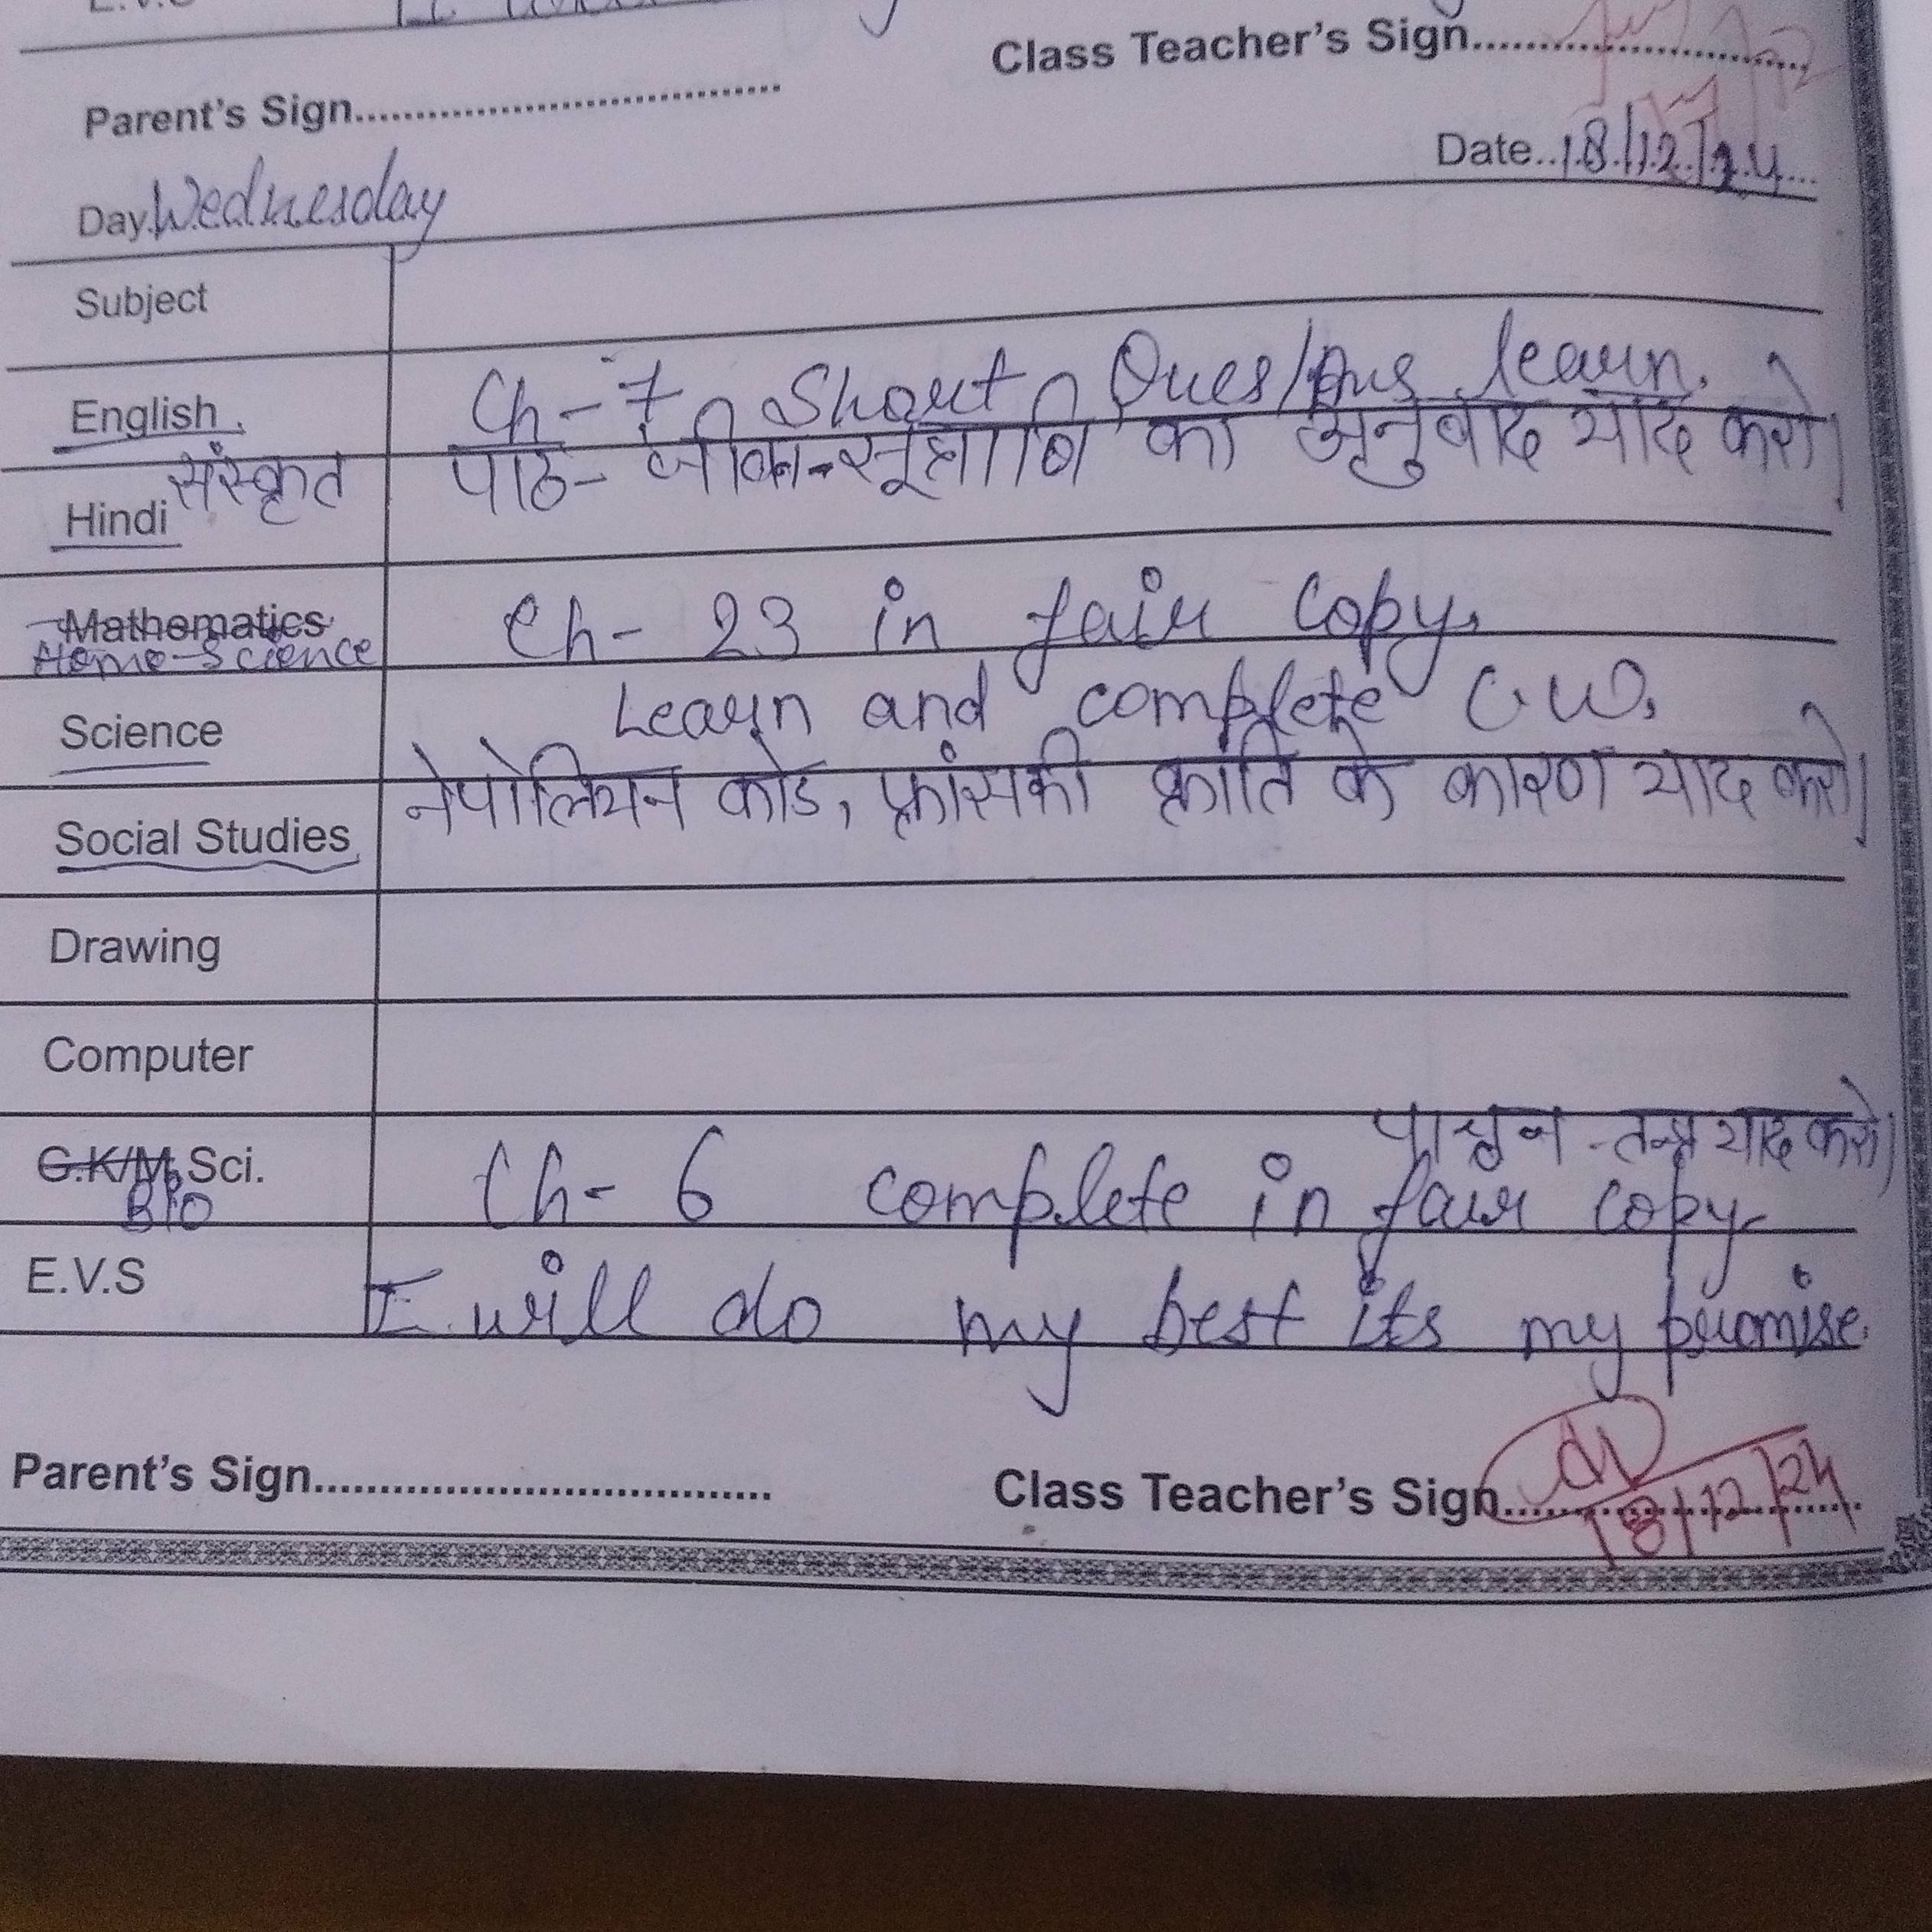 Class Teacher's Sign
Parent's Sign
Date 18/12/24
Day Wednesday
Subject
English. Ch-7 Short Ques/Ans learn.
Hindi संस्कृत पाठ- का अनुवाद याद करो।
Mathematics
Home-Science Ch- 23 in fair copy.
Science Learn and complete C.W.
Social Studies नेपोलियन कोड, फ्रांसकी क्रांति के कारण याद करो।
Drawing
Computer
पाश्चन -तन्त्र याद करो।
G.K/M.Sci.
Bio Ch- 6 complete in fair copy
E.V.S I will do my best its my promise.
Parent's Sign
Class Teacher's Sign
18/12/24